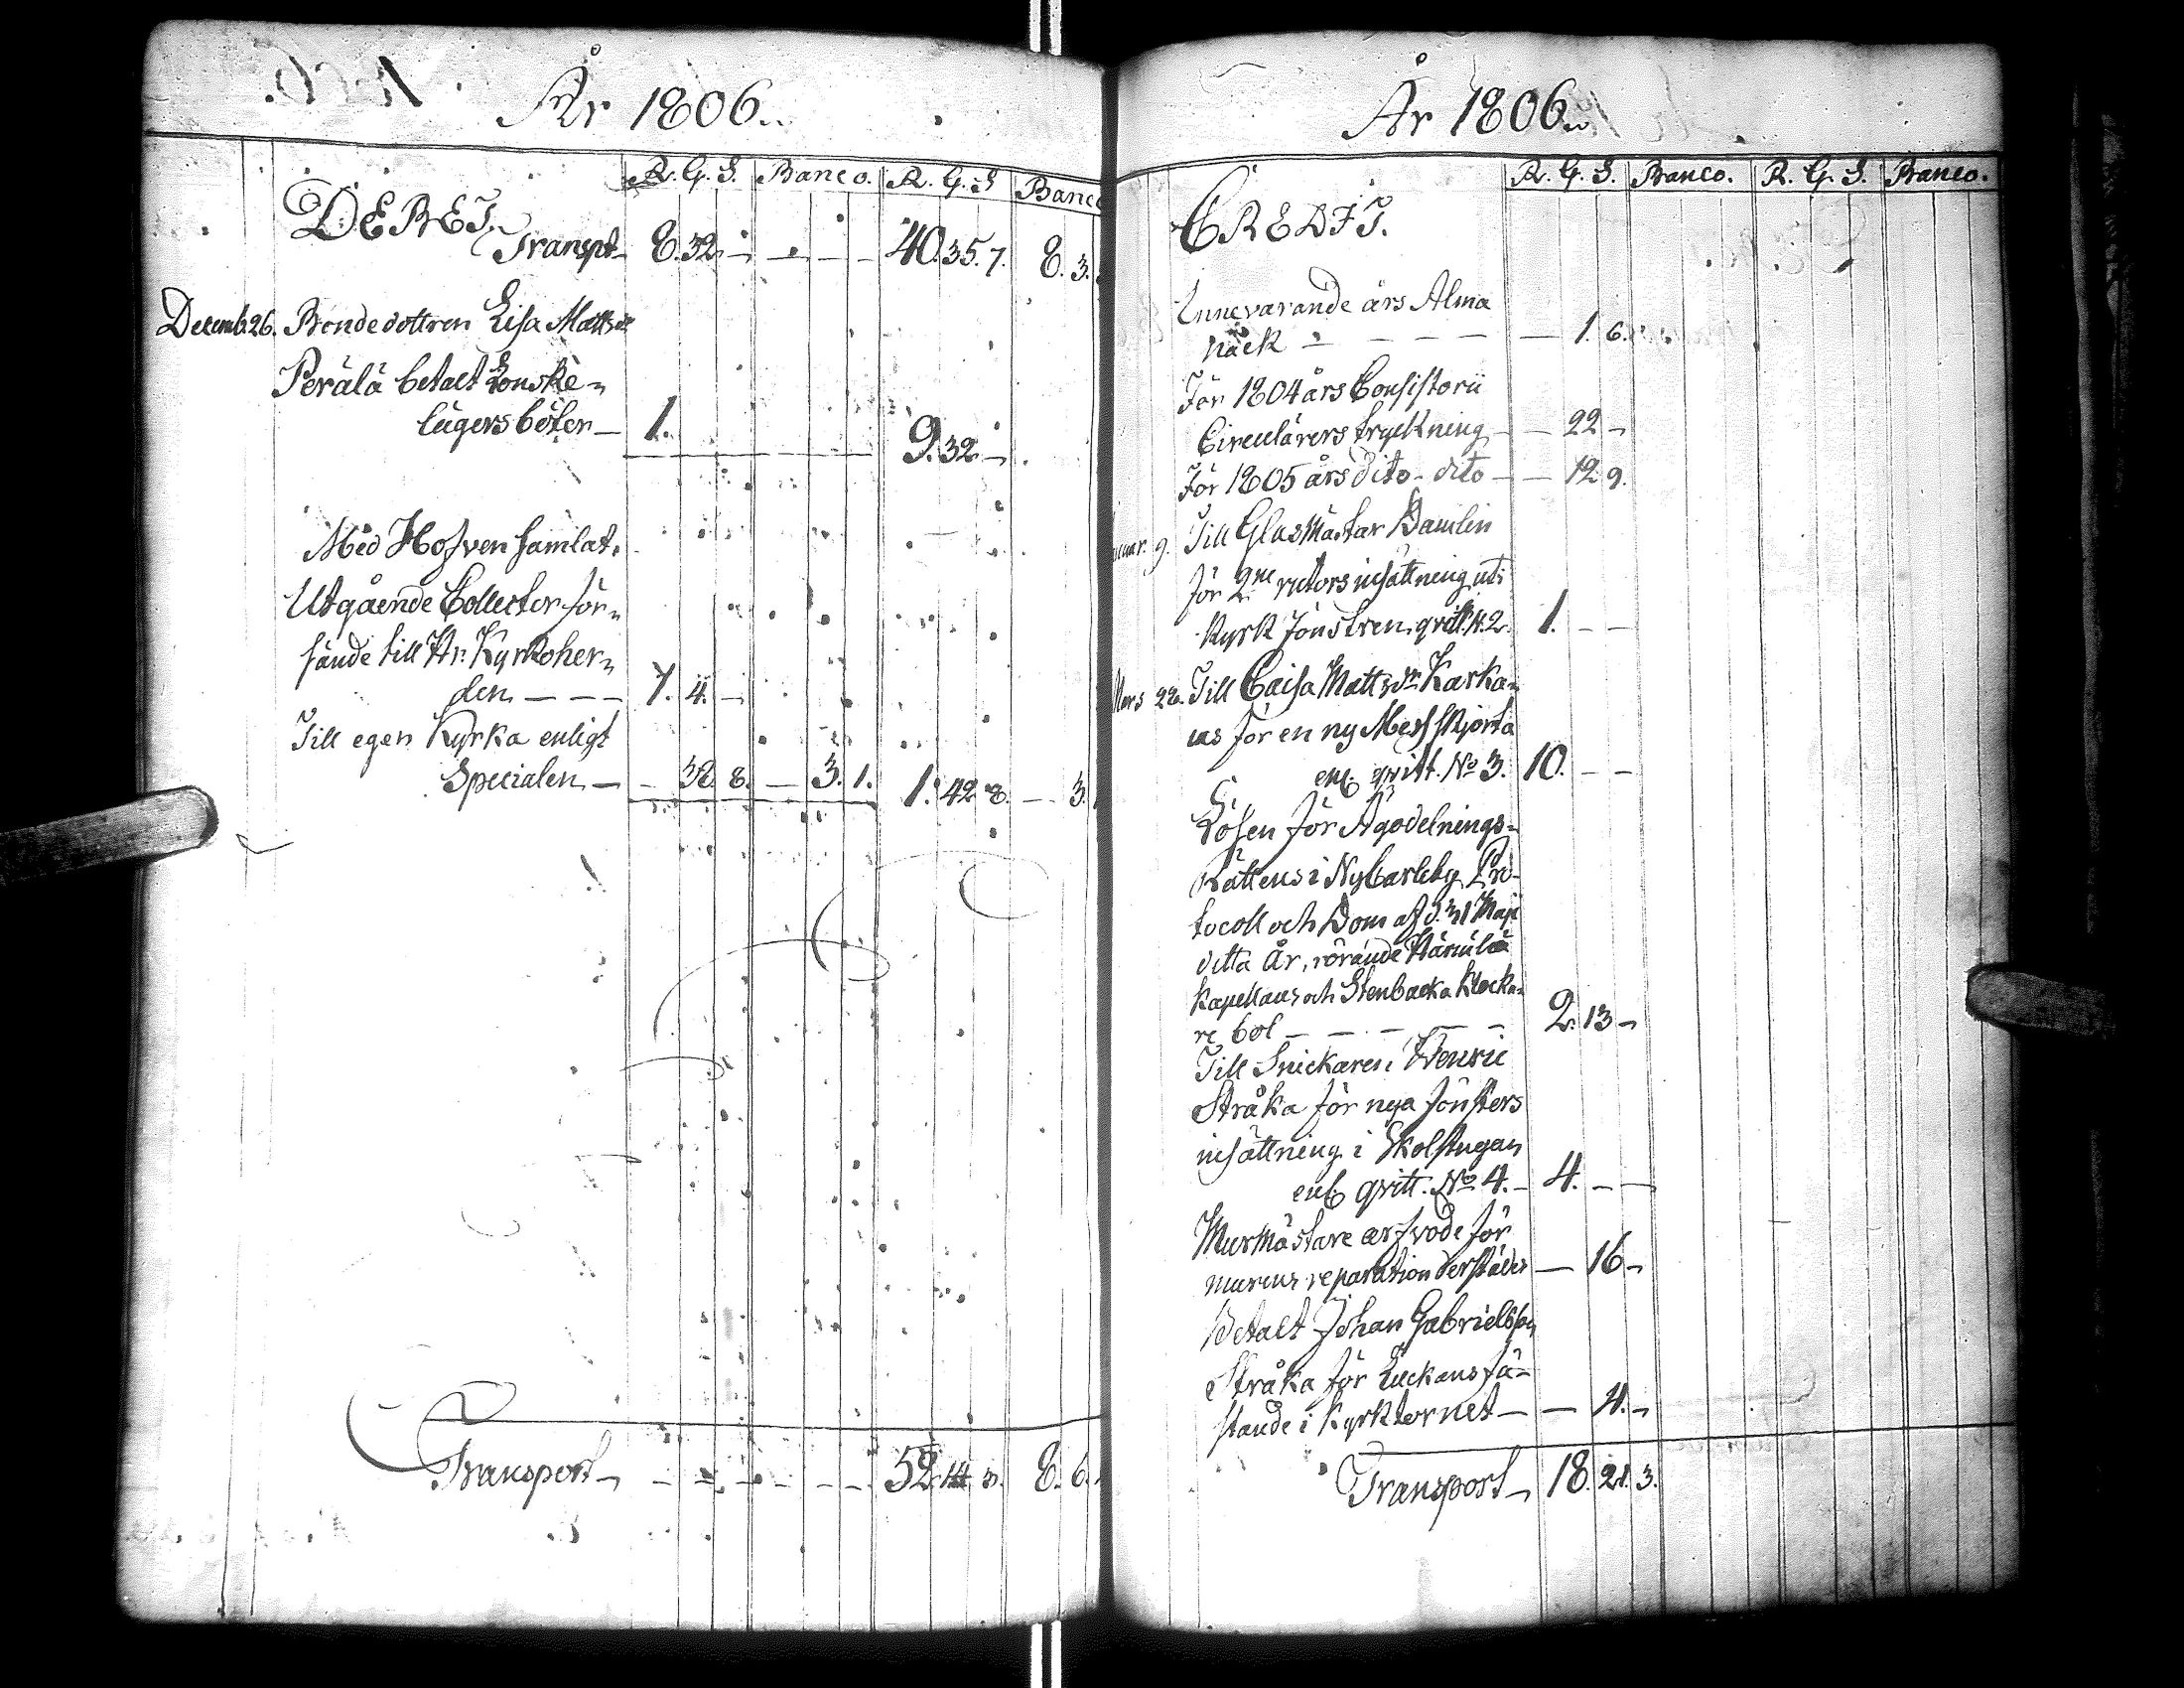 År 1806.
R. G. S. Banco. R. G. S Banco
DEBET.
Transpt 8. 32. 40. 35. 7. 8. 3.
Decemb. 26. Bondedottren Lisa Mattsdr
Perälä betalt Lönske-
lägers böter 1. 9. 32.
Med Hofven samlat.
Utgående Collecter för-
sände till Hr. Kyrkoher-
den 1. 4.
Till egen Kyrka enligt
Specialen 38. 8. 3. 1. 1. 42. 8. 3.
Transport 52. 14. 3. 8. 6.
År 1806.
R. G. S. Banco. R. G. S. Banco.
CREDIT.
Innevarande års Alma
nack 1. 6.
För 1804 års Consistorii
Circulärers tryckning 22
För 1805 års dito dito 12 9.
nuar. 9. Till Glasmästar Damlin
för 2ne rutors insättning uti
Kyrk fönstren, qvitt. N. 2. 1.
Mars 22. Till Caisa Mattsdr Karka-
us för en ny Messskjorta
enl. qvitt. No 3. 10.
Lösen för Ägodelnings-
Rättens i NyCarleby Pro-
tocoll och Dom af d. 31 Maji
detta År, rörande Härmälä
Kapellans och Stenbacka Klocka-
re bol 2. 13
Till Snickaren Henric
Stråka för nya fönsters
insättning i Skolstugan
enl. qvitt. No 4. 4.
Murmästare arfvode för
murens reparation derstädes 16
Betalt Johan Gabrielsson
Stråka för Luckans fä-
stande i Kyrktornet 4.
Transport 18. 21. 3.